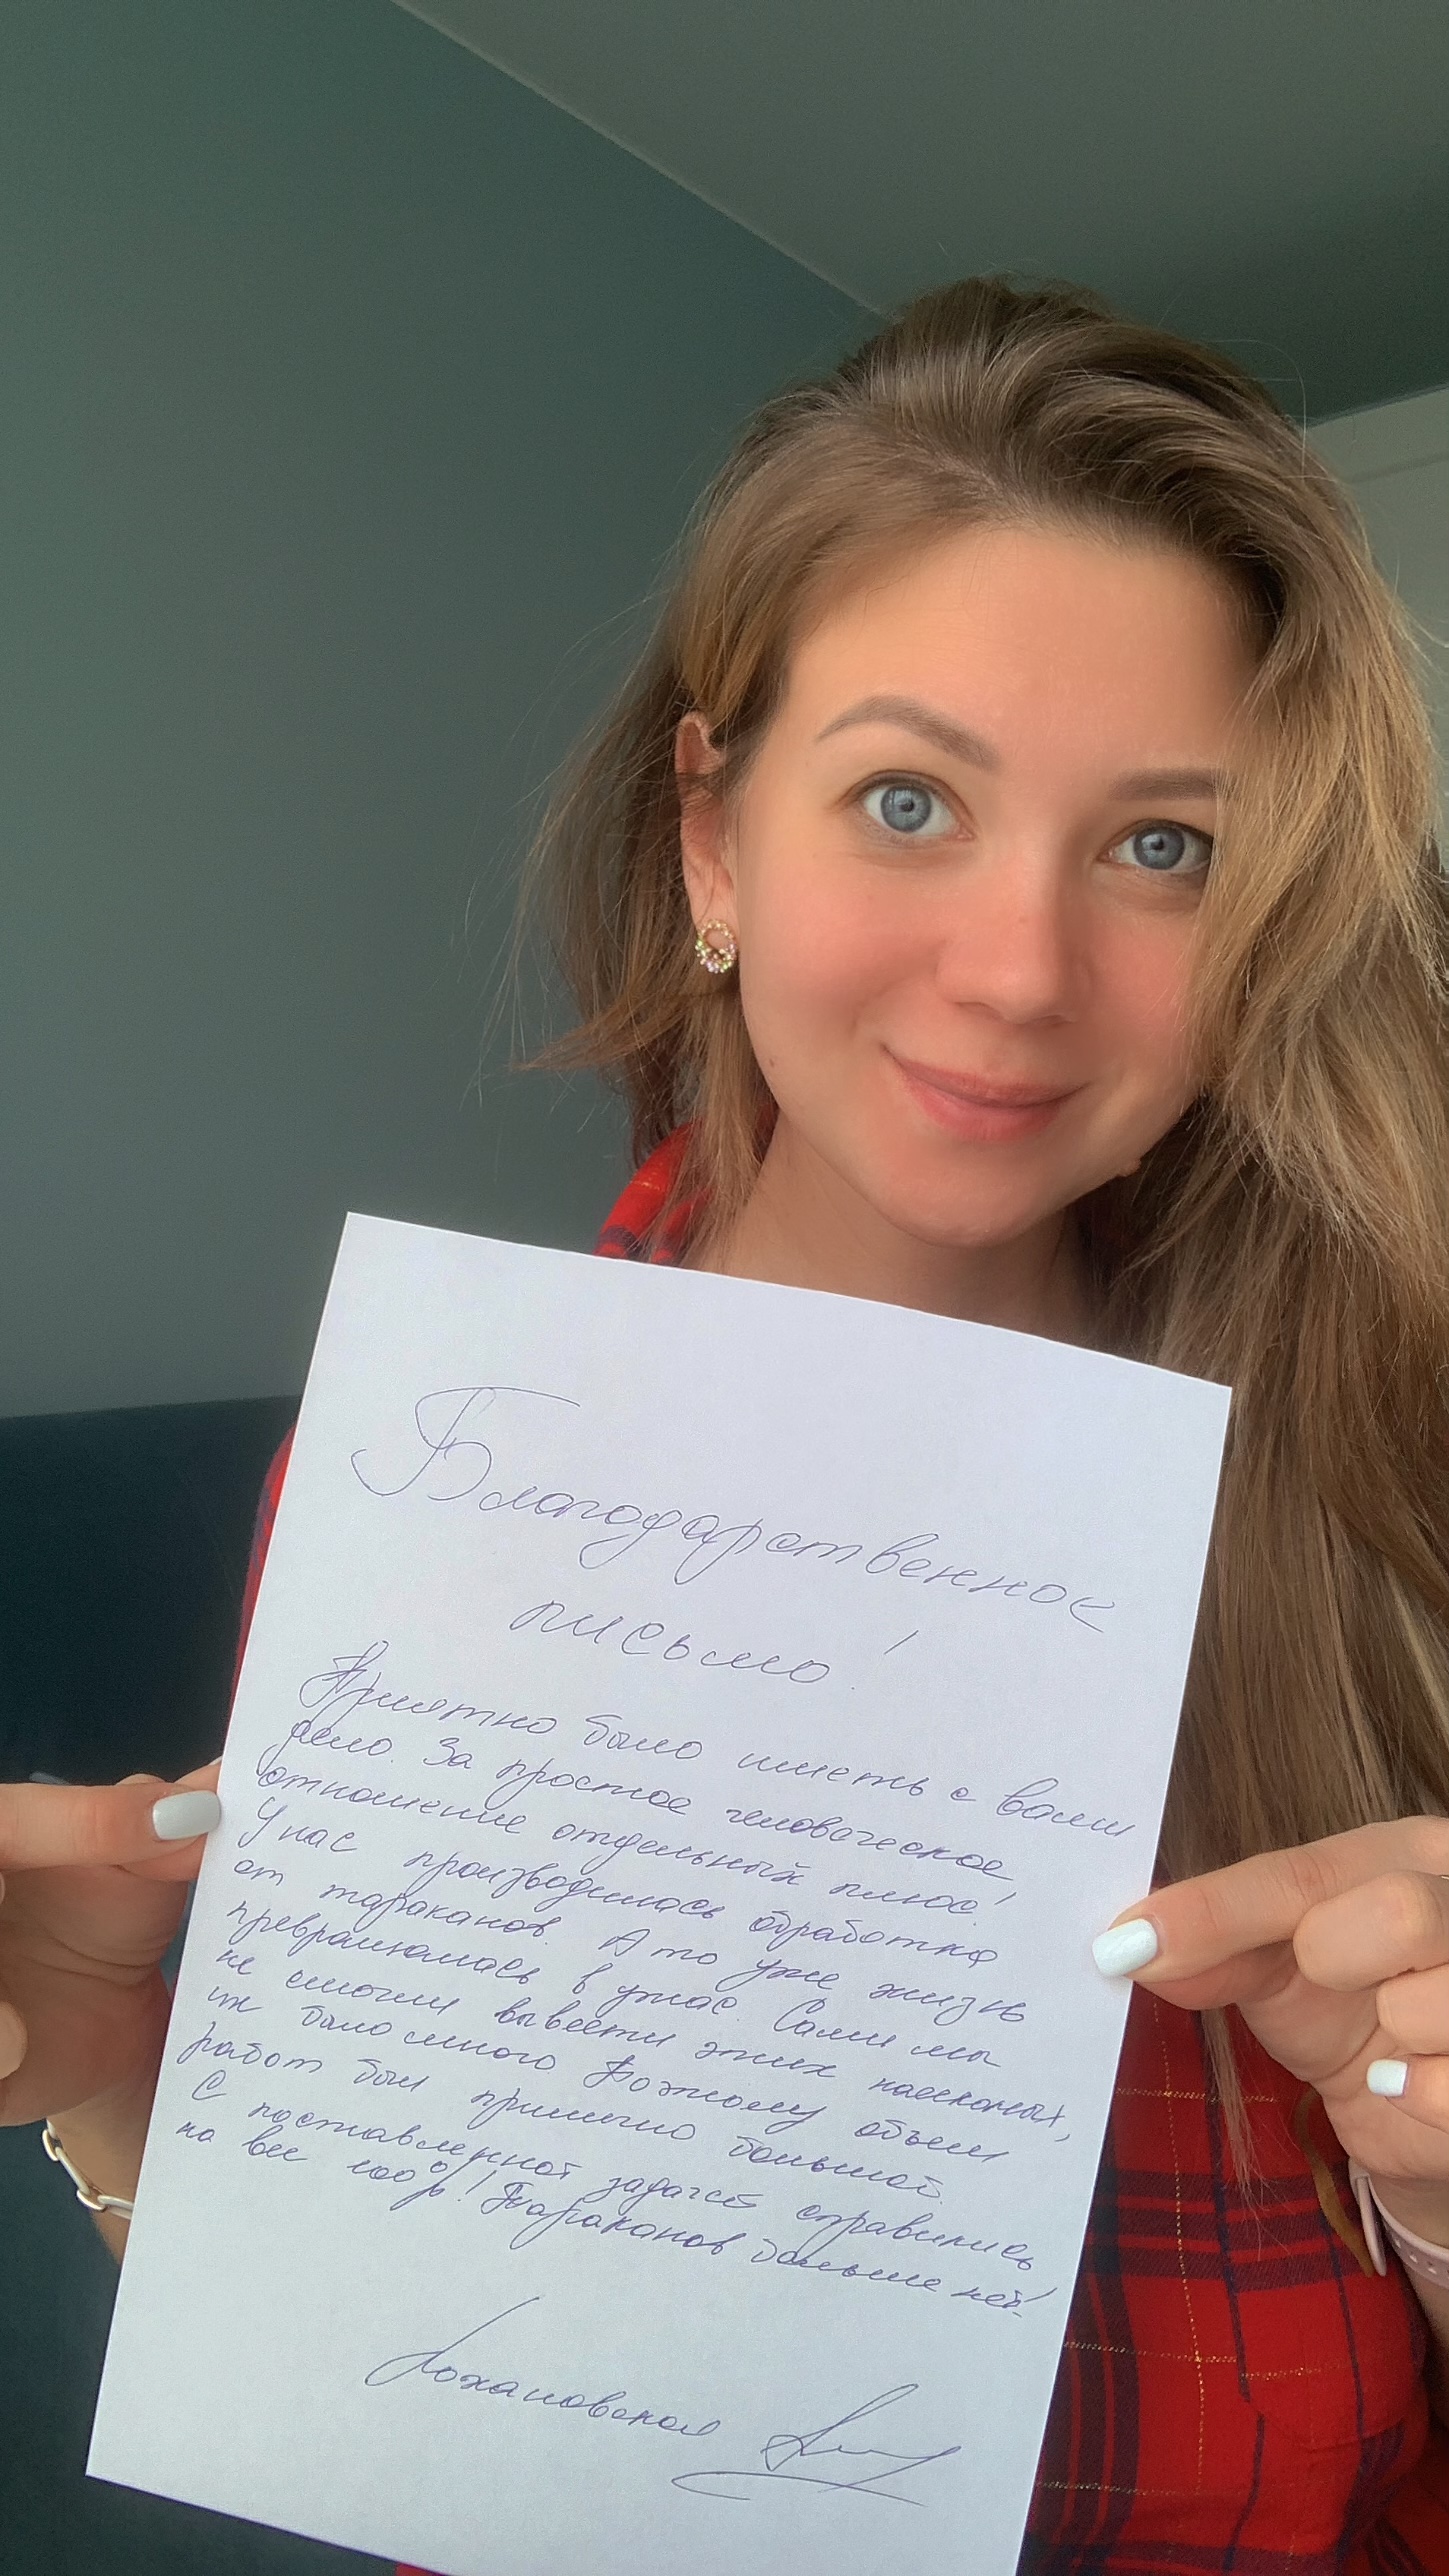 Благодарственное
письмо!
Приятно было иметь с вами
дело. За простое человеческое
отношение отдельный плюс!
У нас производилась обработка
от тараканов. А то уже жизнь
превращалась в ужас. Сами мы
не смогли вывести этих насекомых,
их было много. Поэтому объем
работ был прилично большой.
С поставленной задачей справились
на все 100%! Тараканов больше нет!